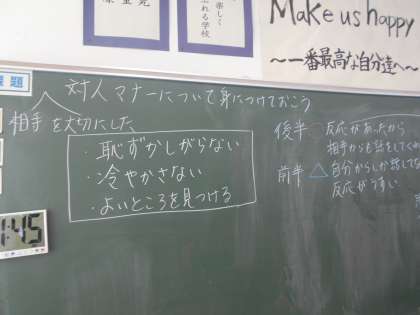 楽しく
れる学校
Make us happy
〜一番最高な自分達へ〜
課題
対人マナーについて身につけておこう
相手を大切にした
・恥ずかしがらない
・冷やかさない
・よいところを見つける
後半 ○ 反応があったから
相手からも話をしてくれ
前半 △ 自分からしか話してな
反応がうすい
1:45